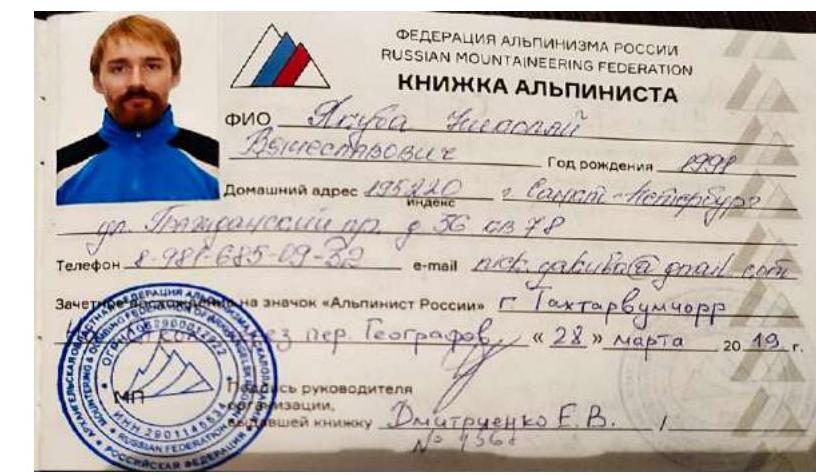 ФЕДЕРАЦИЯ АЛЬПИНИЗМА РОССИИ
RUSSIAN MOUNTAINEERING FEDERATION
КНИЖКА АЛЬПИНИСТА
ФИО Якуба Николай
Вячеславович Год рождения 1991
Домашний адрес 195220 г. Санкт-Петербург
индекс
ул. Гражданский пр. д 36 кв 78
Телефон 8-981-685-09-32 e-mail nick.yakuba@gmail.com
Зачетное восхождение на значок «Альпинист России» г. Тахтарвумчорр
пер. Географов, «28» марта 2019 г.
МП
Подпись руководителя
организации,
выдавшей книжку Дмитриенко Е.В. /
№
ОГРН 2900012922
ИНН 2901145634
RUSSIAN FEDERATION
РОССИЙСКАЯ ФЕДЕРАЦИЯ